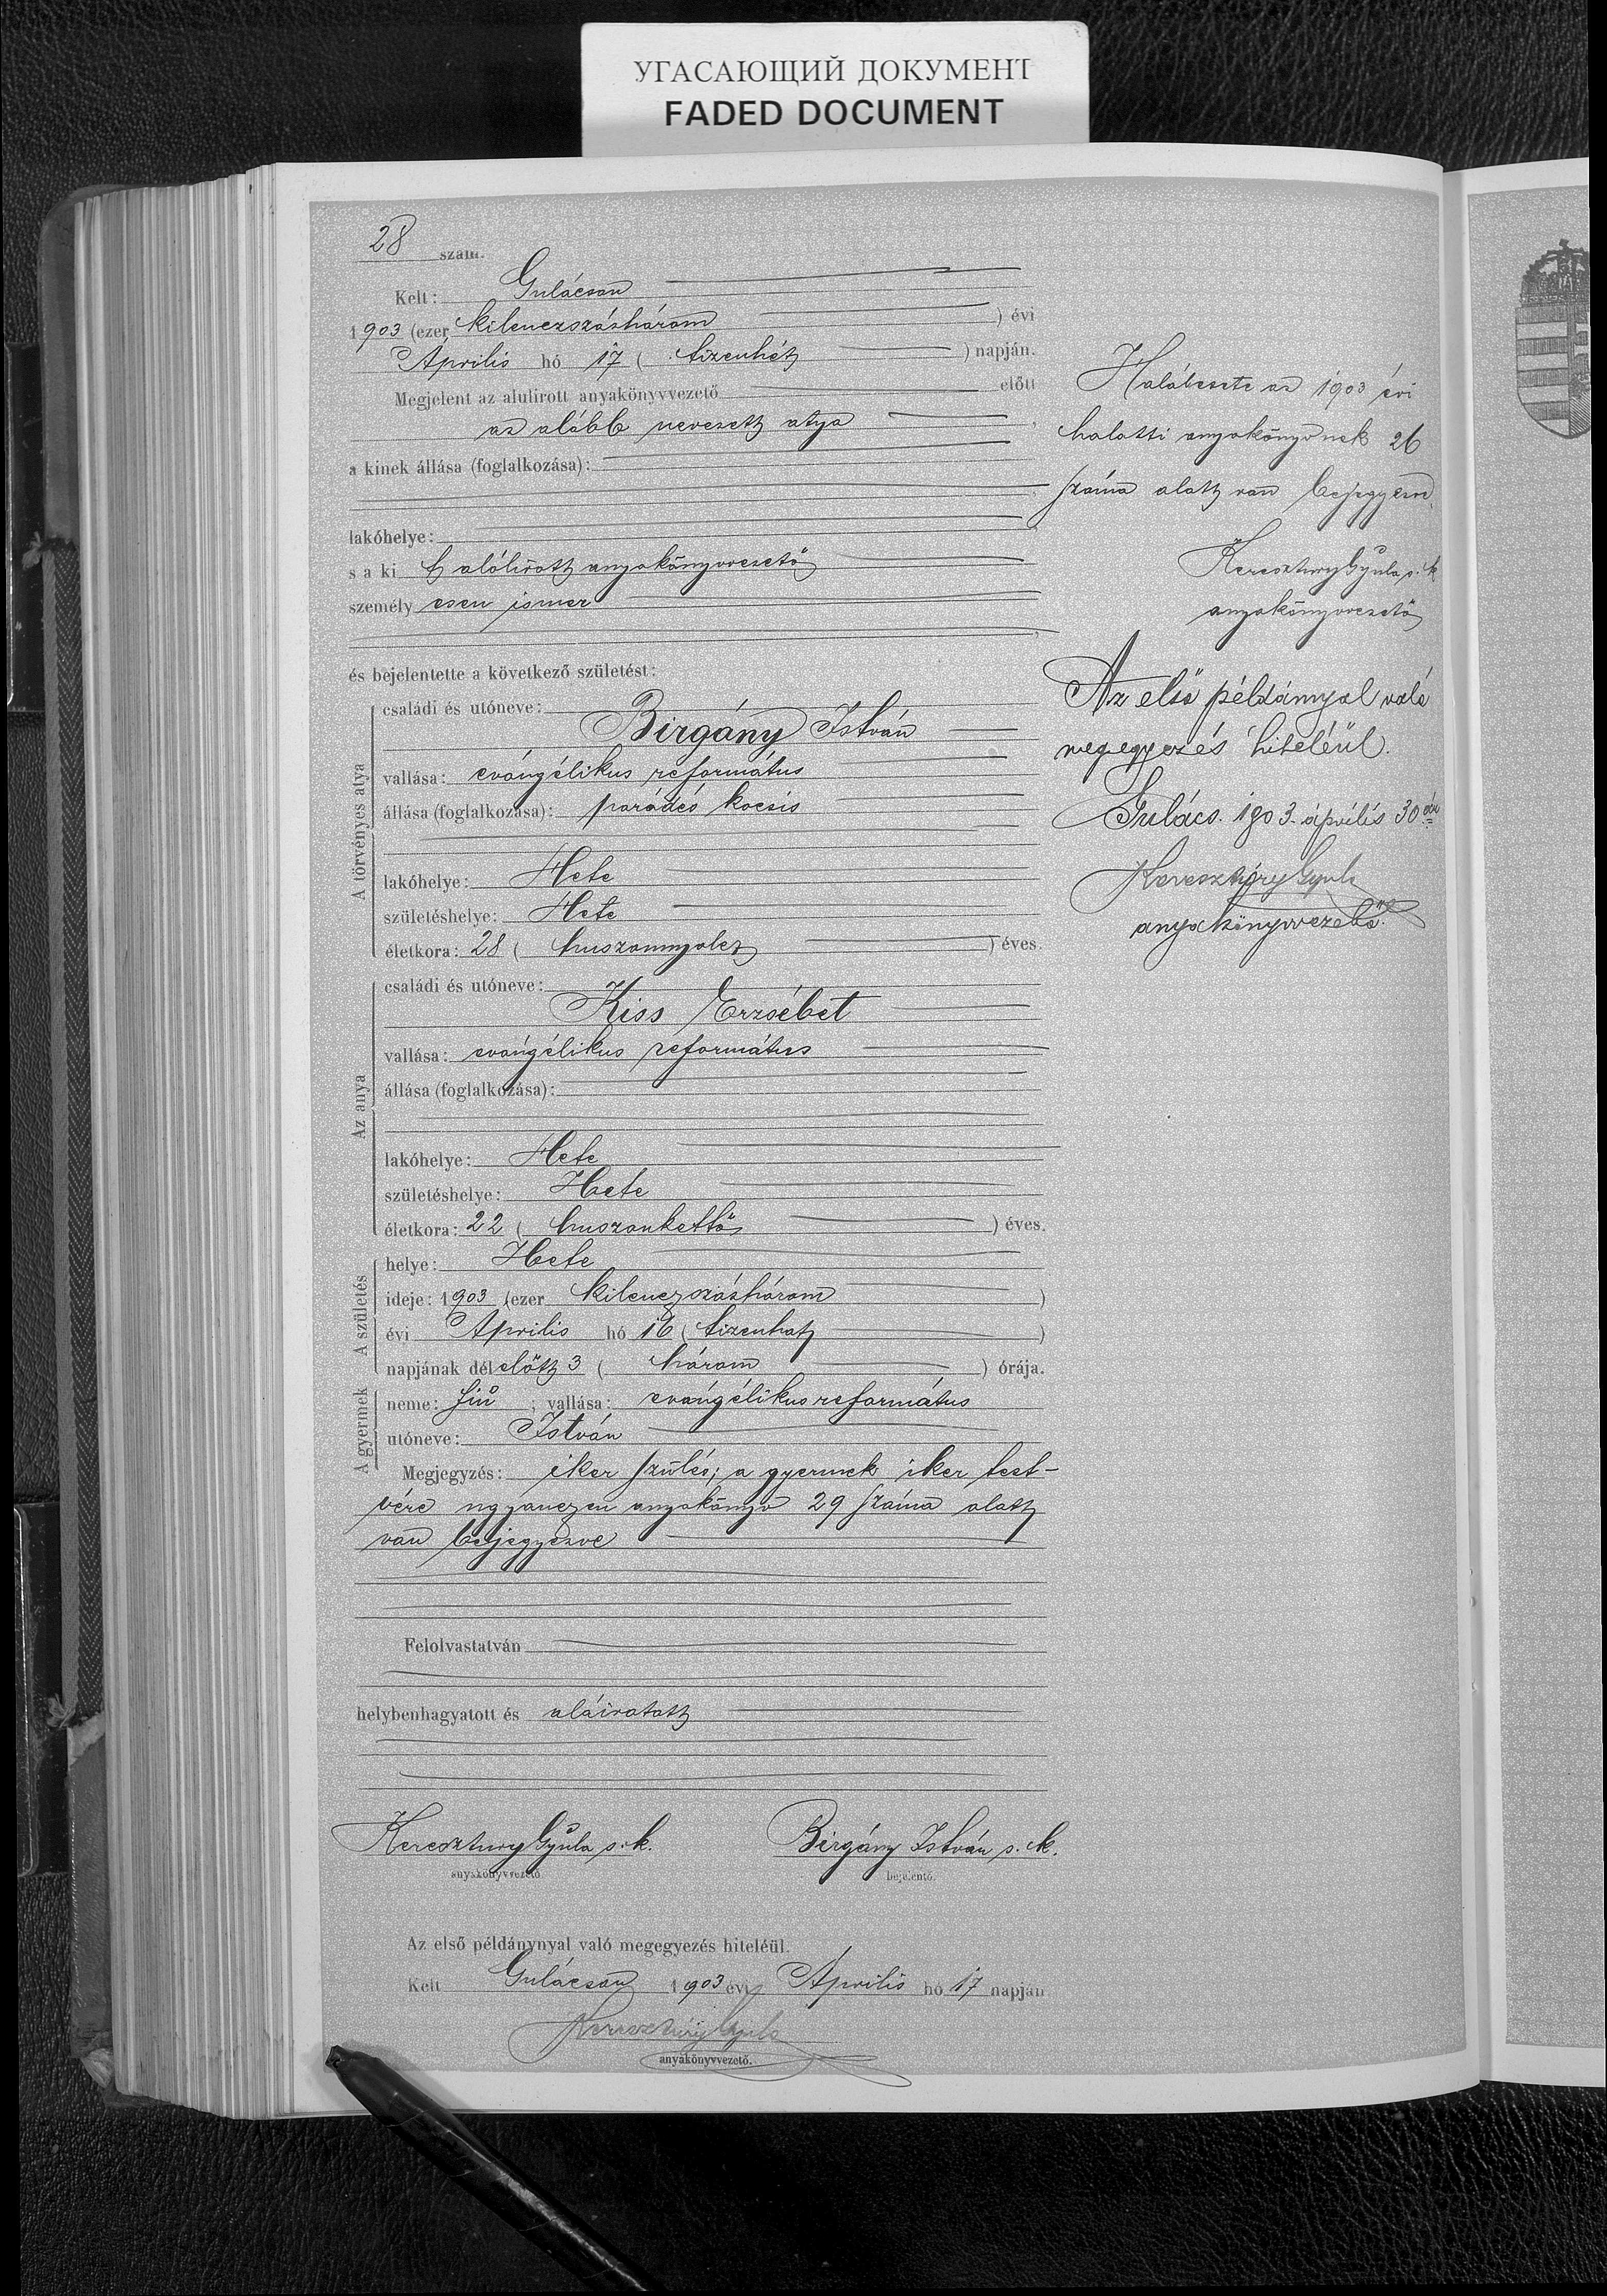 УГАСАЮЩИЙ ДОКУМЕНТ
FADED DOCUMENT
28 szám.
Kelt: Gulácson
1903 (ezer kilenczszázhárom ) évi
Április hó 17 ( tizenhét ) napján.
Megjelent az alulirott anyakönyvvezető előtt
az alább nevezett atya
a kinek állása (foglalkozása):
lakóhelye:
s a ki t alólirott anyakönyvvezető
személy esen ismer
és bejelentette a következő születést:
A törvényes atya
családi és utóneve:
Birgány István
vallása: evángélikus református
állása (foglalkozása): parádés kocsis
lakóhelye: Hete
születéshelye: Hete
életkora: 28 ( huszonnyolcz ) éves.
Az anya
családi és utóneve:
Kiss Erzsébet
vallása: evángélikus református
állása (foglalkozása):
lakóhelye: Hete
születéshelye: Hete
életkora: 22 ( huszonkettő ) éves.
A születés
helye: Hete
ideje: 1903 (ezer kilenczszázhárom )
évi Április hó 16 ( tizenhat )
napjának dél előtt 3 ( három ) órája.
A gyermek
neme: fiú ; vallása: evángélikus református
utóneve: István
Megjegyzés: iker szülés; a gyermek iker test-
vére ugyanezen anyakönyv 29 száma alatt
van bejegyezve
Felolvastatván
helybenhagyatott és aláiratott
Keresztury Gyula s. k.
anyakönyvvezető
Birgány István s. k.
bejelentő.
Az első példánynyal való megegyezés hiteléül.
Kelt Gulácson 1903 évi Április hó 17 napján
Keresztúry Gyula
anyakönyvvezető.
Halálesete az 1903 évi
halotti anyakönyvnek 26
száma alatt van bejegyezve
Keresztury Gyula s. k
anyakönyvvezető
Az első példányal való
megegyezés hiteléül.
Gulács. 1903. április 30án
Keresztúry Gyula
anyakönyvvezető.